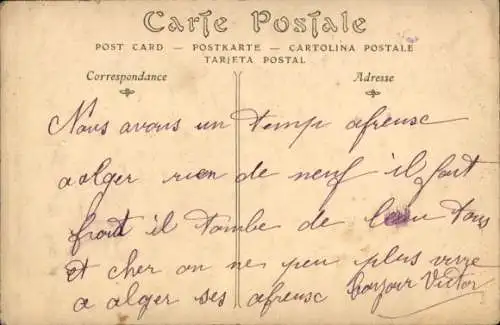 Carte Postale
POST CARD — POSTKARTE — CARTOLINA POSTALE
TARJETA POSTAL
Correspondance
Adresse
Nous avons un temp afreuse
a alger rien de neuf il fait
froit il tombe de leau tous
et cher on ne peu plus vivre
a alger ses afreuse bonjour Victor